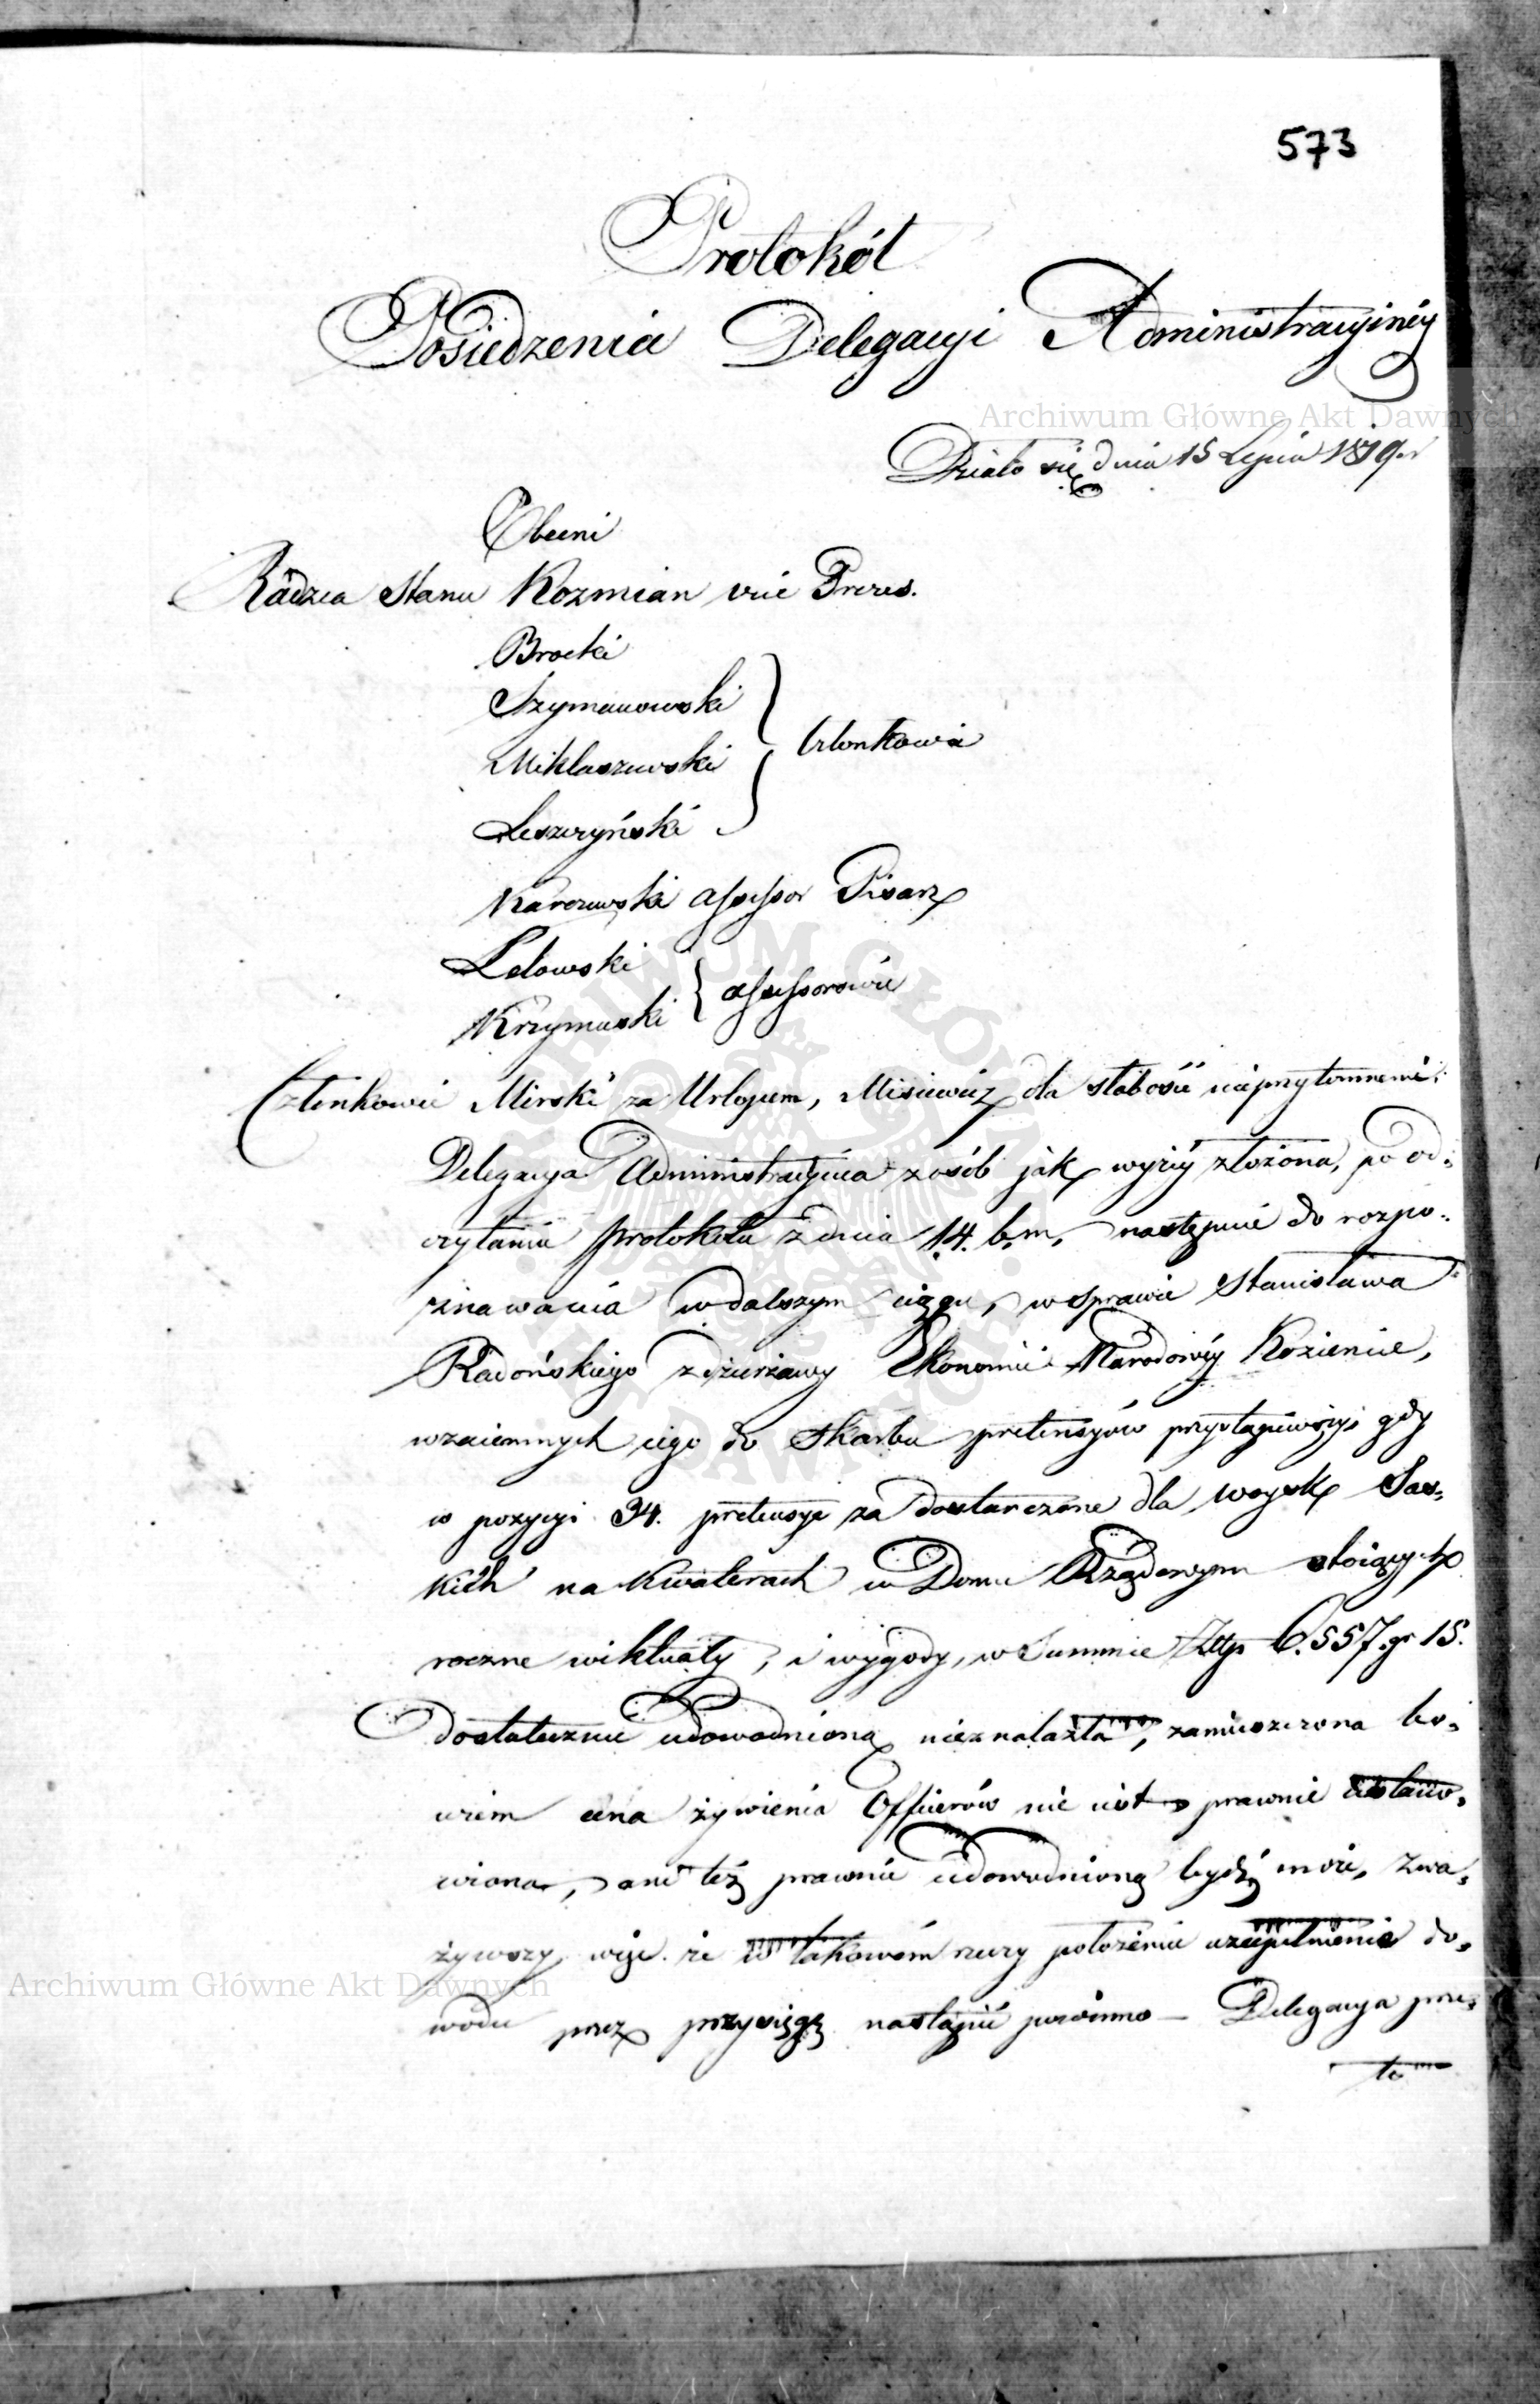 573
Protokół
Posiedzenia Delegacyi Administracyinéy
Działo się dnia 15 Lipca 1819 r
Obecni
Radzca Stanu Kozmian vice Prezes.
Brocki
Szymanowski
Mikłaszewski
Członkowie
Leszczyński
Karczewski assessor Pisarz
Lelowski
Krzymuski
assessorowie
Członkowie Mirski za Urlopem, Misiewicz dla słabości nieprzytomnemi.
Delegacya Administracyina z osób jak wyżéy złożona, po od-
czytaniu protokółu z dnia 14. b.m, następnie do rozpo-
znawania w dalszym ciągu, w sprawie Stanisława
Radońskiego z dzierżawy Ekonomii Narodowéy Kozienice,
wzaiemnych iego do Skarbu pretensyów przystąpiwszy gdy
w pozycyi 34. pretensya za dostarczone dla woysk Sas-
kich na kwaterach w Domu Rządowym stoiących
roczne wiktuały, i wygody, w Summie Złtp 6.557. gr 15.
dostatecznie udowodnioną nieznalazła, zamieszczona bo-
wiem cena żywienia Officerów nie iest prawnie ustano-
wiona, ani też prawnie udowodnioną bydź może, zwa-
żywszy więc że w takowém rzeczy położeniu uzupełnienie do-
wodu przez przysięgę nastąpić powinno — Delegacya prze-
to
Archiwum Główne Akt Dawnych
Archiwum Główne Akt Dawnych
ARCHIWUM GŁÓWNE AKT DAWNYCH